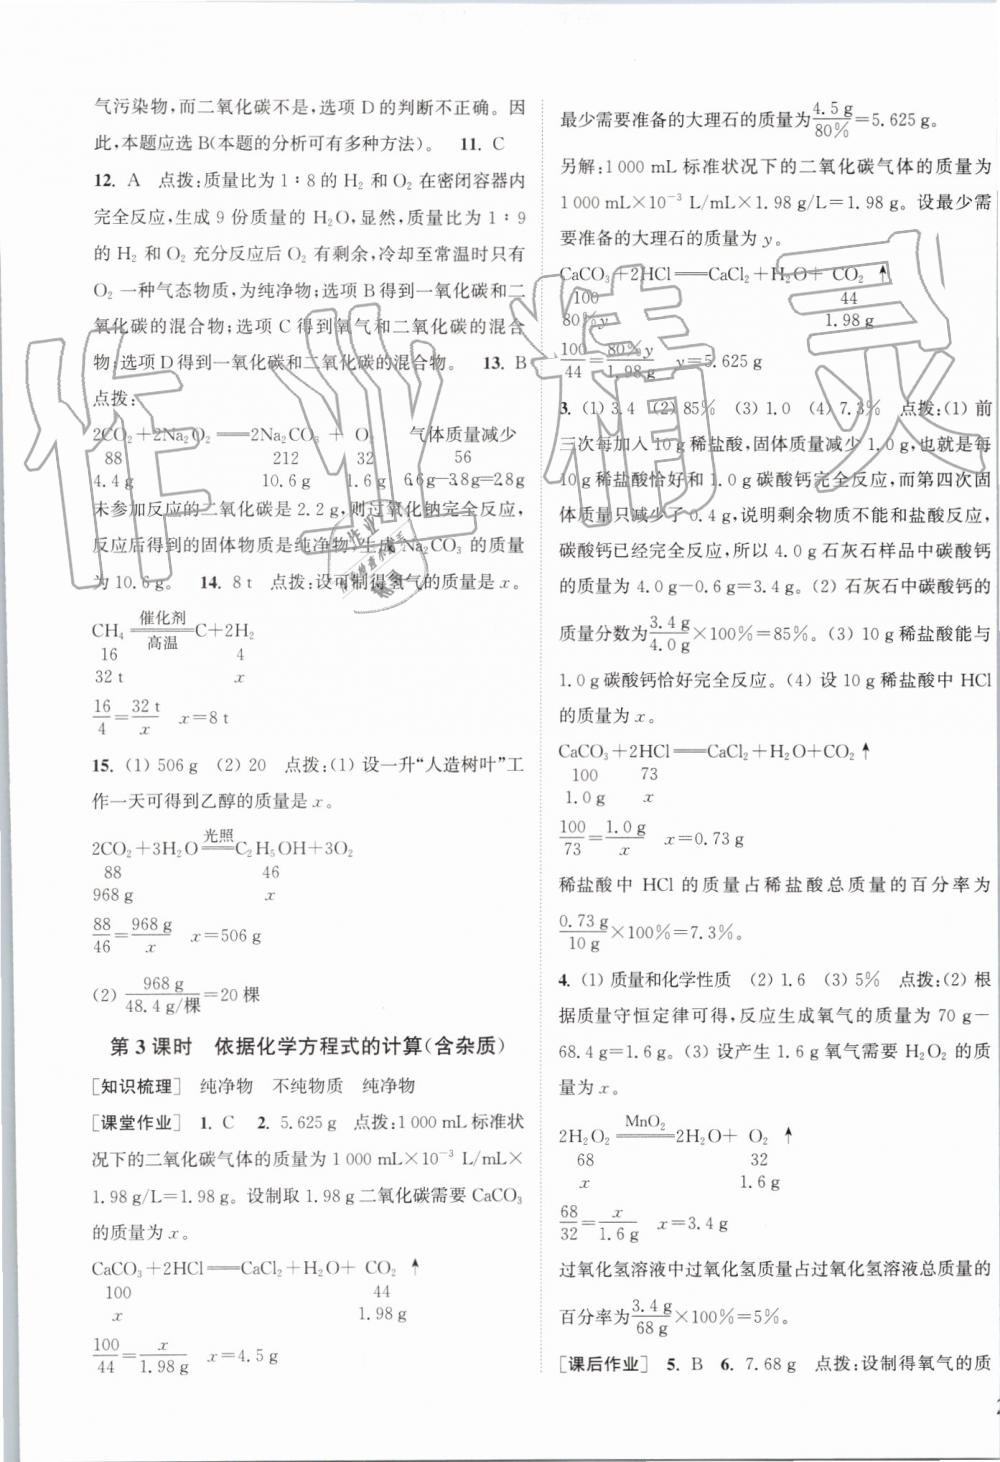 气污染物,而二氧化碳不是,选项 D 的判断不正确。因
此,本题应选 B(本题的分析可有多种方法)。 11. C
12. A 点拨:质量比为 1∶8 的 H₂ 和 O₂ 在密闭容器内
完全反应,生成 9 份质量的 H₂O,显然,质量比为 1∶9
的 H₂ 和 O₂ 充分反应后 O₂ 有剩余,冷却至常温时只有
O₂ 一种气态物质,为纯净物;选项 B 得到一氧化碳和二
氧化碳的混合物;选项 C 得到氧气和二氧化碳的混合
物;选项 D 得到一氧化碳和二氧化碳的混合物。 13. B
点拨:
2CO₂+2Na₂O₂══2Na₂CO₃ + O₂ 气体质量减少
88 212 32 56
4.4 g 10.6 g 1.6 g 6.6 g−3.8 g=2.8 g
未参加反应的二氧化碳是 2.2 g,则过氧化钠完全反应,
反应后的固体物质是纯净物,生成 Na₂CO₃ 的质量
为 10.6 g。 14. 8 t 点拨:设可制得氢气的质量是 x。
CH₄ ══催化剂/高温══ C+2H₂
16 4
32 t x
16/4=32 t/x x=8 t
15. (1) 506 g (2) 20 点拨:(1) 设一升“人造树叶”工
作一天可得到乙醇的质量是 x。
2CO₂+3H₂O ══光照══ C₂H₅OH+3O₂
88 46
968 g x
88/46=968 g/x x=506 g
(2) 968 g/48.4 g/棵=20 棵
第 3 课时 依据化学方程式的计算(含杂质)
[知识梳理] 纯净物 不纯物质 纯净物
[课堂作业] 1. C 2. 5.625 g 点拨:1 000 mL 标准状
况下的二氧化碳气体的质量为 1 000 mL×10⁻³ L/mL×
1.98 g/L=1.98 g。设制取 1.98 g 二氧化碳需要 CaCO₃
的质量为 x。
CaCO₃+2HCl══CaCl₂+H₂O+ CO₂ ↑
100 44
x 1.98 g
100/44=x/1.98 g x=4.5 g
最少需要准备的大理石的质量为4.5 g/80%=5.625 g。
另解:1 000 mL 标准状况下的二氧化碳气体的质量为
1 000 mL×10⁻³ L/mL×1.98 g/L=1.98 g。设最少需
要准备的大理石的质量为 y。
CaCO₃+2HCl══CaCl₂+H₂O+ CO₂ ↑
100 44
80% y 1.98 g
100/44=80% y/1.98 g y=5.625 g
3. (1) 3.4 (2) 85% (3) 1.0 (4) 7.3% 点拨:(1) 前
三次每加入 10 g 稀盐酸,固体质量减少 1.0 g,也就是每
10 g 稀盐酸恰好和 1.0 g 碳酸钙完全反应,而第四次固
体质量只减少了 0.4 g,说明剩余物质不能和盐酸反应,
碳酸钙已经完全反应,所以 4.0 g 石灰石样品中碳酸钙的
质量为 4.0 g-0.6 g=3.4 g。(2) 石灰石中碳酸钙的
质量分数为3.4 g/4.0 g×100%=85%。(3) 10 g 稀盐酸能与
1.0 g 碳酸钙恰好完全反应。(4) 设 10 g 稀盐酸中 HCl
的质量为 x。
CaCO₃+2HCl══CaCl₂+H₂O+CO₂ ↑
100 73
1.0 g x
100/73=1.0 g/x x=0.73 g
稀盐酸中 HCl 的质量占稀盐酸总质量的百分率为
0.73 g/10 g×100%=7.3%。
4. (1) 质量和化学性质 (2) 1.6 (3) 5% 点拨:(2) 根
据质量守恒定律可得,反应生成氧气的质量为 70 g-
68.4 g=1.6 g。(3) 设产生 1.6 g 氧气需要 H₂O₂ 的质
量为 x。
2H₂O₂ ══MnO₂══ 2H₂O+ O₂ ↑
68 32
x 1.6 g
68/32=x/1.6 g x=3.4 g
过氧化氢溶液中过氧化氢质量占过氧化氢溶液总质量的
百分率为3.4 g/68 g×100%=5%。
[课后作业] 5. B 6. 7.68 g 点拨:设制得氧气的质
作业精灵